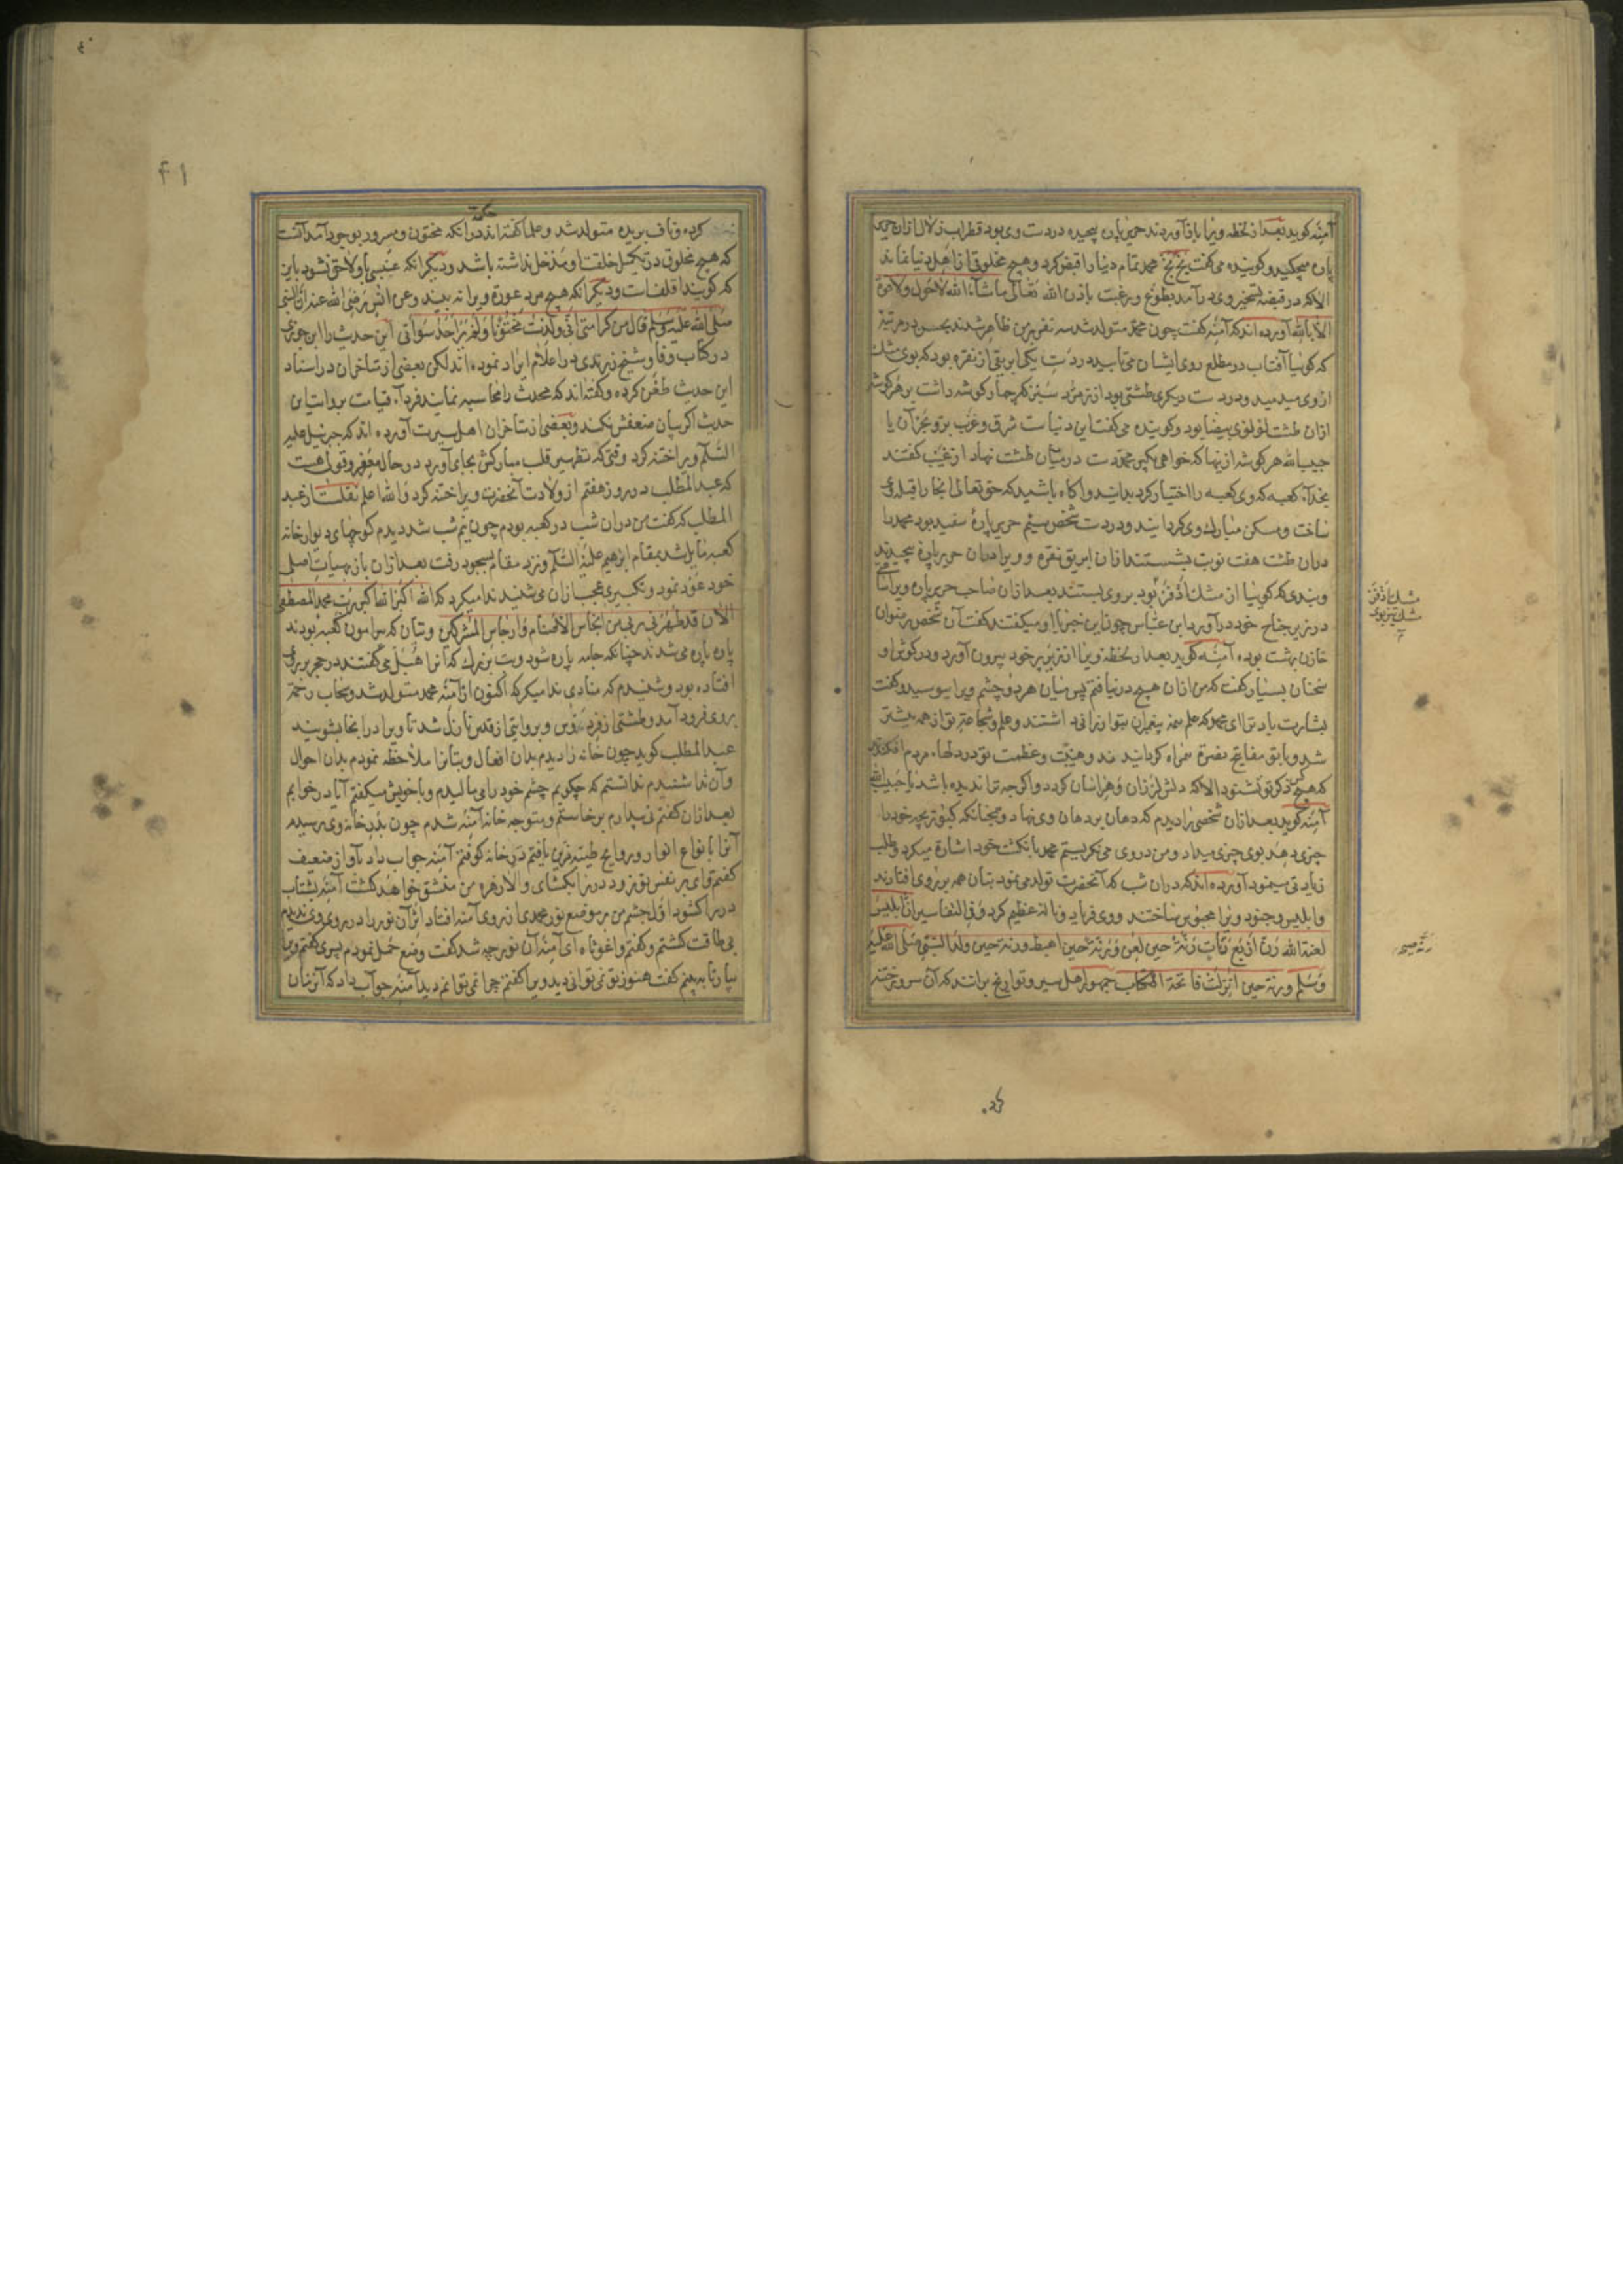 آمنه کوید بعد از لحظه ویرا باز آوردند حریر پاره پیچیده در دست وی بود قطرات زلال ازان حریر
پاره میچکید و کوینده می کفت بخ بخ محمد تمام دنیا را قبض کرد و هیچ مخلوقی از اهل دنیا نماند
الا که در قبضه تسخیر وی در آمد بطوع و رغبت باذن الله تعالی ماشاء الله لا حول ولا قوة
الا بالله آورده اند که آمنه کفت چون محمد متولد شد سه نفر بر من ظاهر شدند بحسن در مرتبه
که کوئیا آفتاب در مطلع روی ایشان می تابید در دست یکی ابریقی از نقره بود که بوی مشک
از وی میدمید و در دست دیکری طشتی بود از زمرد سبز که چهار کوشه داشت بر هر کوشه
ازان طشت لؤلؤی بیضا بود و کوینده می کفت این دنیاست شرق و غرب بر و بحر آن یا
حبیب الله هر کوشه از ینها که خواهی بکیر محمد دست در میان طشت نهاد از غیب کفتند
بخدآء کعبه که وی کعبه را اختیار کرد بدانید و آکاه باشید که حق تعالی انجا را قبله وی
ساخت و مسکن مبارک وی کردانید و در دست شخص سیم حریر پارۀ سفید بود محمد را
دران طشت هفت نوبت بشستند ازان ابریق نقره و ویرا دران حریر پاره پیچیدند
و بندی که کوئیا از مشک اذفر بود بر وی بستند بعد ازان صاحب حریر پاره ویرا ساعتی
در زیر جناح خود در آورد ابن عباس چون این خبر را او میکفت کفت آن شخص رضوان
خازن بهشت بوده آمنه کوید بعد از لحظه ویرا از زیر پر خود بیرون آورد و در کوش او
سخنان بسیار کفت که من ازان هیچ در نیافتم پس میان هر دو چشم ویرا بوسید و کفت
بشارت باد ترا ای محمد که علم همه پیغمبران بتو ارزانی داشتند و علم و شجاعت تو از همه بیشتر
شد و با تو مفاتیح نصرة همراه کردانیدند و هیبت و عظمت تو در دلهاء مردم افکندند
که هیچ کس ذکر تو نشنود الا که دلش لرزان و هراسان کردد و اکرچه ترا ندیده باشد یا حبیب الله
آمنه کوید بعد ازان شخصی را دیدم که دهان بر دهان وی نهاد و همچنانکه کبوتر بچه خود را
چیزی دهد بوی چیزی میداد و من در وی می نکریستم محمد بانکشت خود اشارة میکرد و طلب
زیادتی مینمود آورده اند که دران شب که آنحضرت تولد می نمود بتان همه بر روی افتادند
و ابلیس و جنود ویرا محبوس ساختند و وی فریاد و ناله عظیم کرد و فی التفاسیر ان ابلیس
لعنة الله رن اربع رنات رنة حین لعن و رنة حین اهبط و رنة حین ولد النبی صلی الله علیه
وسلم ورنة حین انزلت فاتحة الکتاب جمهور اهل سیر و تواریخ برانند که آن سرور ختنه
مشک اذفر
مشک تیزبوی
رنة صیحه
۴۱
کرده و ناف بریده متولد شد و علما کفته اند در انکه مختون و مسرور بوجود آمد آنست
حکمة
که هیچ مخلوق در تکمیل خلقت او مدخل نداشته باشد و دیکر انکه عیبی باو لاحق نشود باین
که کویند اقلف است و دیکر انکه هیچ مرد عورة ویرا نه بیند و عن انس رضی الله عنه ان النبی
صلی الله علیه وسلم قال من کرامتی انی ولدت مختونا ولم یر احد سوأتی این حدیث را ابن جوزی
در کتاب وفا و شیخ زرندی در اعلام ایراد نموده اند لکن بعضی از متاخران در اسناد
این حدیث طعن کرده و کفته اند که محدث را محاسبه نمایند فردآء قیامت بروایت این
حدیث اکر بیان ضعفش نکند و بعضی از متاخران اهل سیرت آورده اند که جبرئیل علیه
السلام ویرا ختنه کرد وقتی که تطهیر قلب مبارکش بجای آورد در حال صغر و قولی هست
که عبد المطلب در روز هفتم از ولادت آنحضرت ویرا ختنه کرد و الله اعلم نقلست از عبد
المطلب که کفت من دران شب در کعبه بودم چون نیم شب شد دیدم که چهار دیوار خانه
کعبه مایل شد بمقام ابرهیم علیه السلام و نزد مقام بسجود رفت بعد ازان باز بهیات اصلی
خود عود نمود و تکبیری عجب ازان می شنیدند میکرد که الله اکبر الله اکبر رب محمد المصطفی
الآن قد طهرنی ربی من انجاس الاصنام و ارجاس المشرکین و بتان که پیرامون کعبه بودند
پاره پاره می شدند چنانکه جامه پاره شود و بت بزرک که آنرا هبل می کفتند در حجر بر روی
افتاده بود و شنیدم که منادی ندا میکرد که اکنون از آمنه محمد متولد شد و سحاب رحمة
بر وی فرود آمد و طشتی از فردوس و بروایتی از قدس نازل شد تا ویرا درانجا بشویند
عبد المطلب کوید چون خانه را دیدم بدان افعال و بتانرا ملاحظه نمودم بدان احوال
و آن ندا شنیدم ندانستم که چکویم چشم خود را می مالیدم و با خویش میکفتم آیا در خوابم
بعد ازان کفتم نی بیدارم برخاستم و متوجه خانه آمنه شدم چون بدر خانه وی رسیدم
آنرا بانواع انوار و روایح طیبه مزین یافتم در خانه کوفتم آمنه جواب داد بآواز ضعیف
کفتم وای بر نفس تو زود در را بکشای والا زهره من منشق خواهد کشت آمنه بشتاب
در را کشود اول چشم من بر موضع نور محمدی از روی آمنه افتاد اثر آن نور را در روی وی ندیدم
بی طاقت کشتم و کفتم واغوثاه ای آمنه آن نور چه شد کفت وضع حمل نمودم پسری کفتم ویرا
بیار تا به بینم کفت هنوز تو نمی توانی دید ویرا کفتم چرا نمی توانم دید آمنه جواب داد که آن زمان